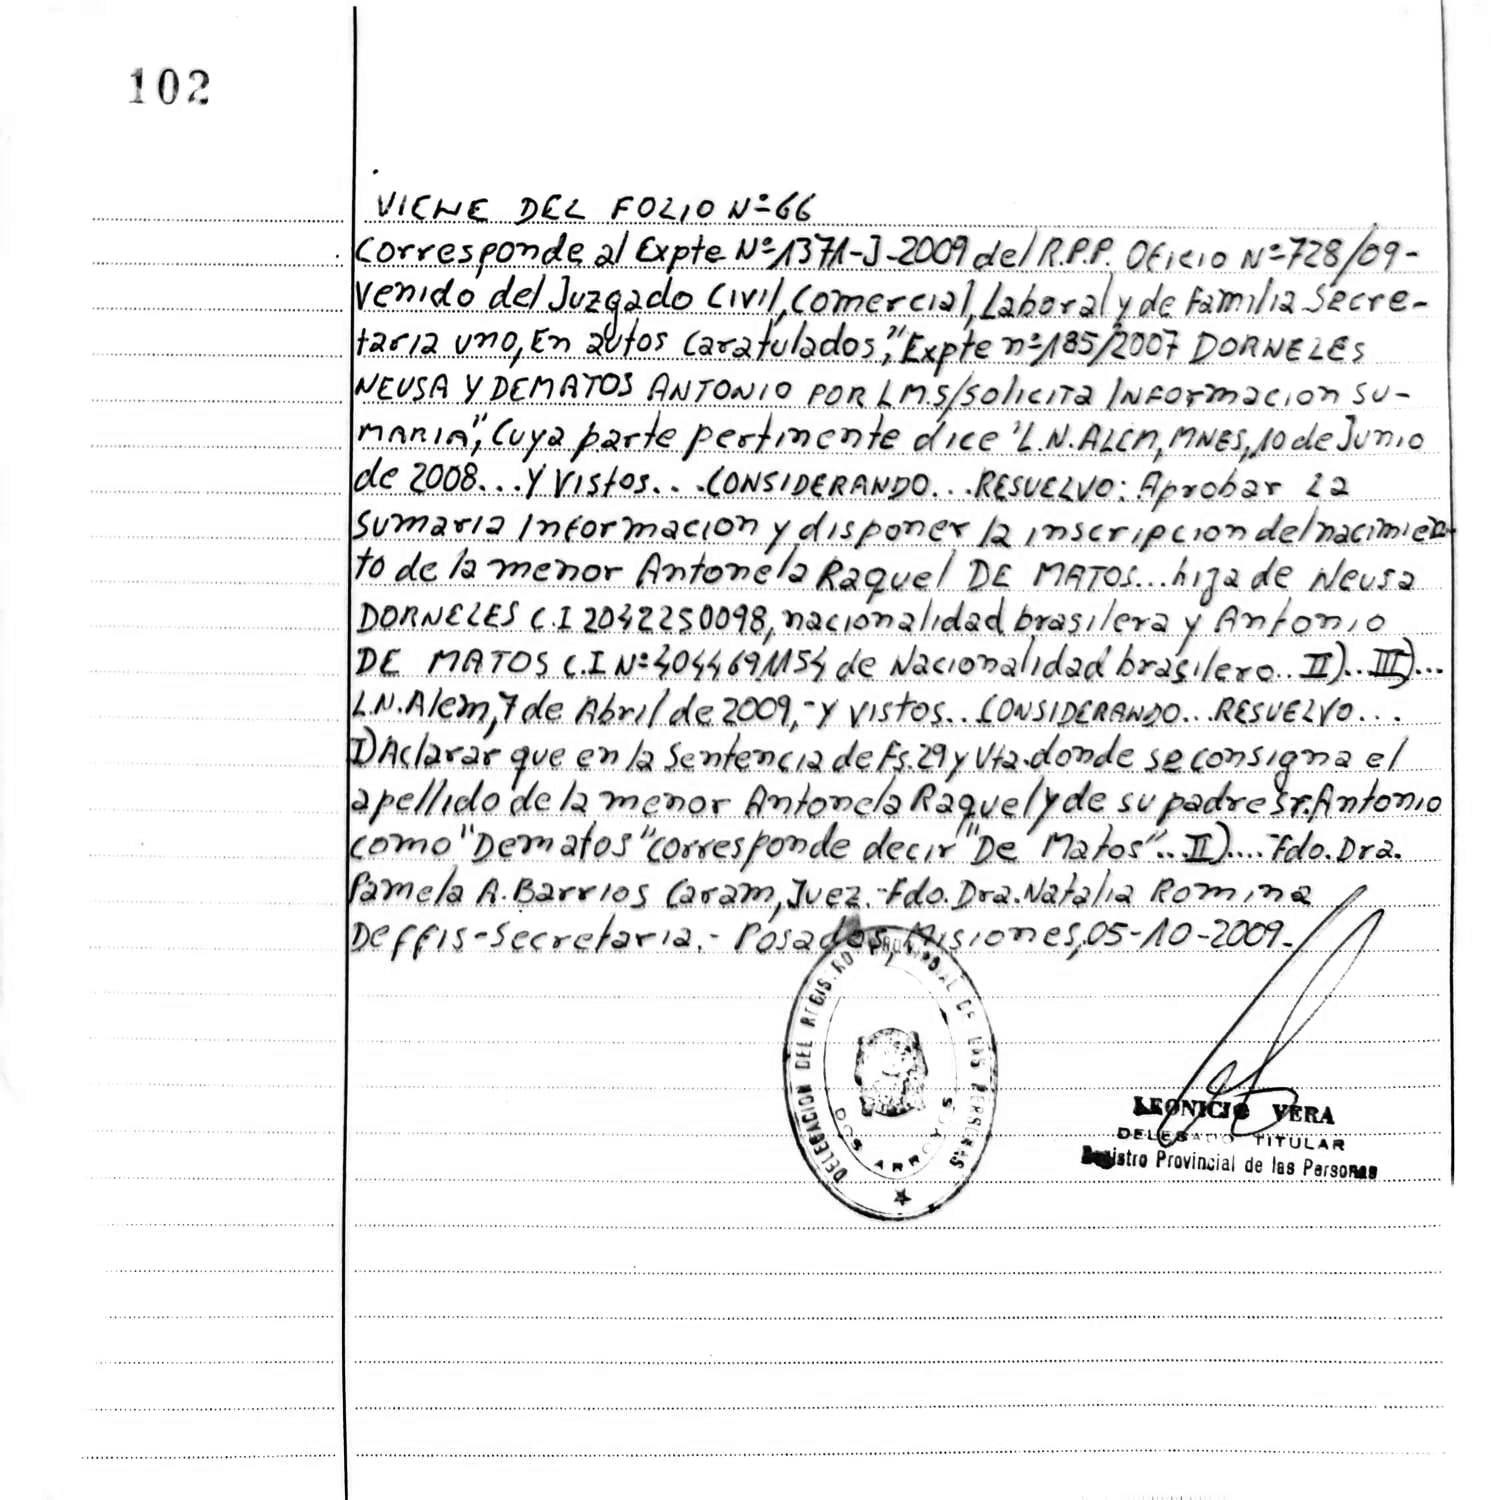 102
VIENE DEL FOLIO Nº-66
Corresponde al Expte Nº-1371-J-2009 del R.P.P. Oficio Nº-728/09-
venido del Juzgado Civil, Comercial, Laboral y de Familia Secre-
taria uno, En autos Caratulados," Expte nº-185/2007 DORNELES
NEUSA Y DEMATOS ANTONIO POR L.M.S/Solicita INFormacion SU-
MARIA", Cuya parte pertinente dice "L.N.ALEM, MNES, 10 de Junio
de 2008...Y Vistos...CONSIDERANDO...RESUELVO: Aprobar La
Sumaria Informacion y disponer la inscripcion del nacimien-
to de la menor Antonela Raquel DE MATOS...hija de Neusa
DORNELES C.I 2042250098, nacionalidad brasilera y Antonio
DE MATOS C.I Nº 4044691154 de Nacionalidad brasilero..II)..III)...
L.N.Alem, 7 de Abril de 2009,-Y vistos..CONSIDERANDO...RESUELVO...
I) Aclarar que en la Sentencia de Fs.29 y Vta.donde se consigna el
apellido de la menor Antonela Raquel y de su padre Sr.Antonio
como "Dematos" corresponde decir "De Matos"..II)....-Fdo.Dra.
Pamela A.Barrios Caram, Juez.-Fdo.Dra.Natalia Romina
Deffis-Secretaria.- Posadas, Misiones, 05-10-2009.-
DELEGACION DEL REGISTRO PROVINCIAL DE LAS PERSONAS
DOS ARROYOS
LEONICIO VERA
DELEGADO TITULAR
Registro Provincial de las Personas